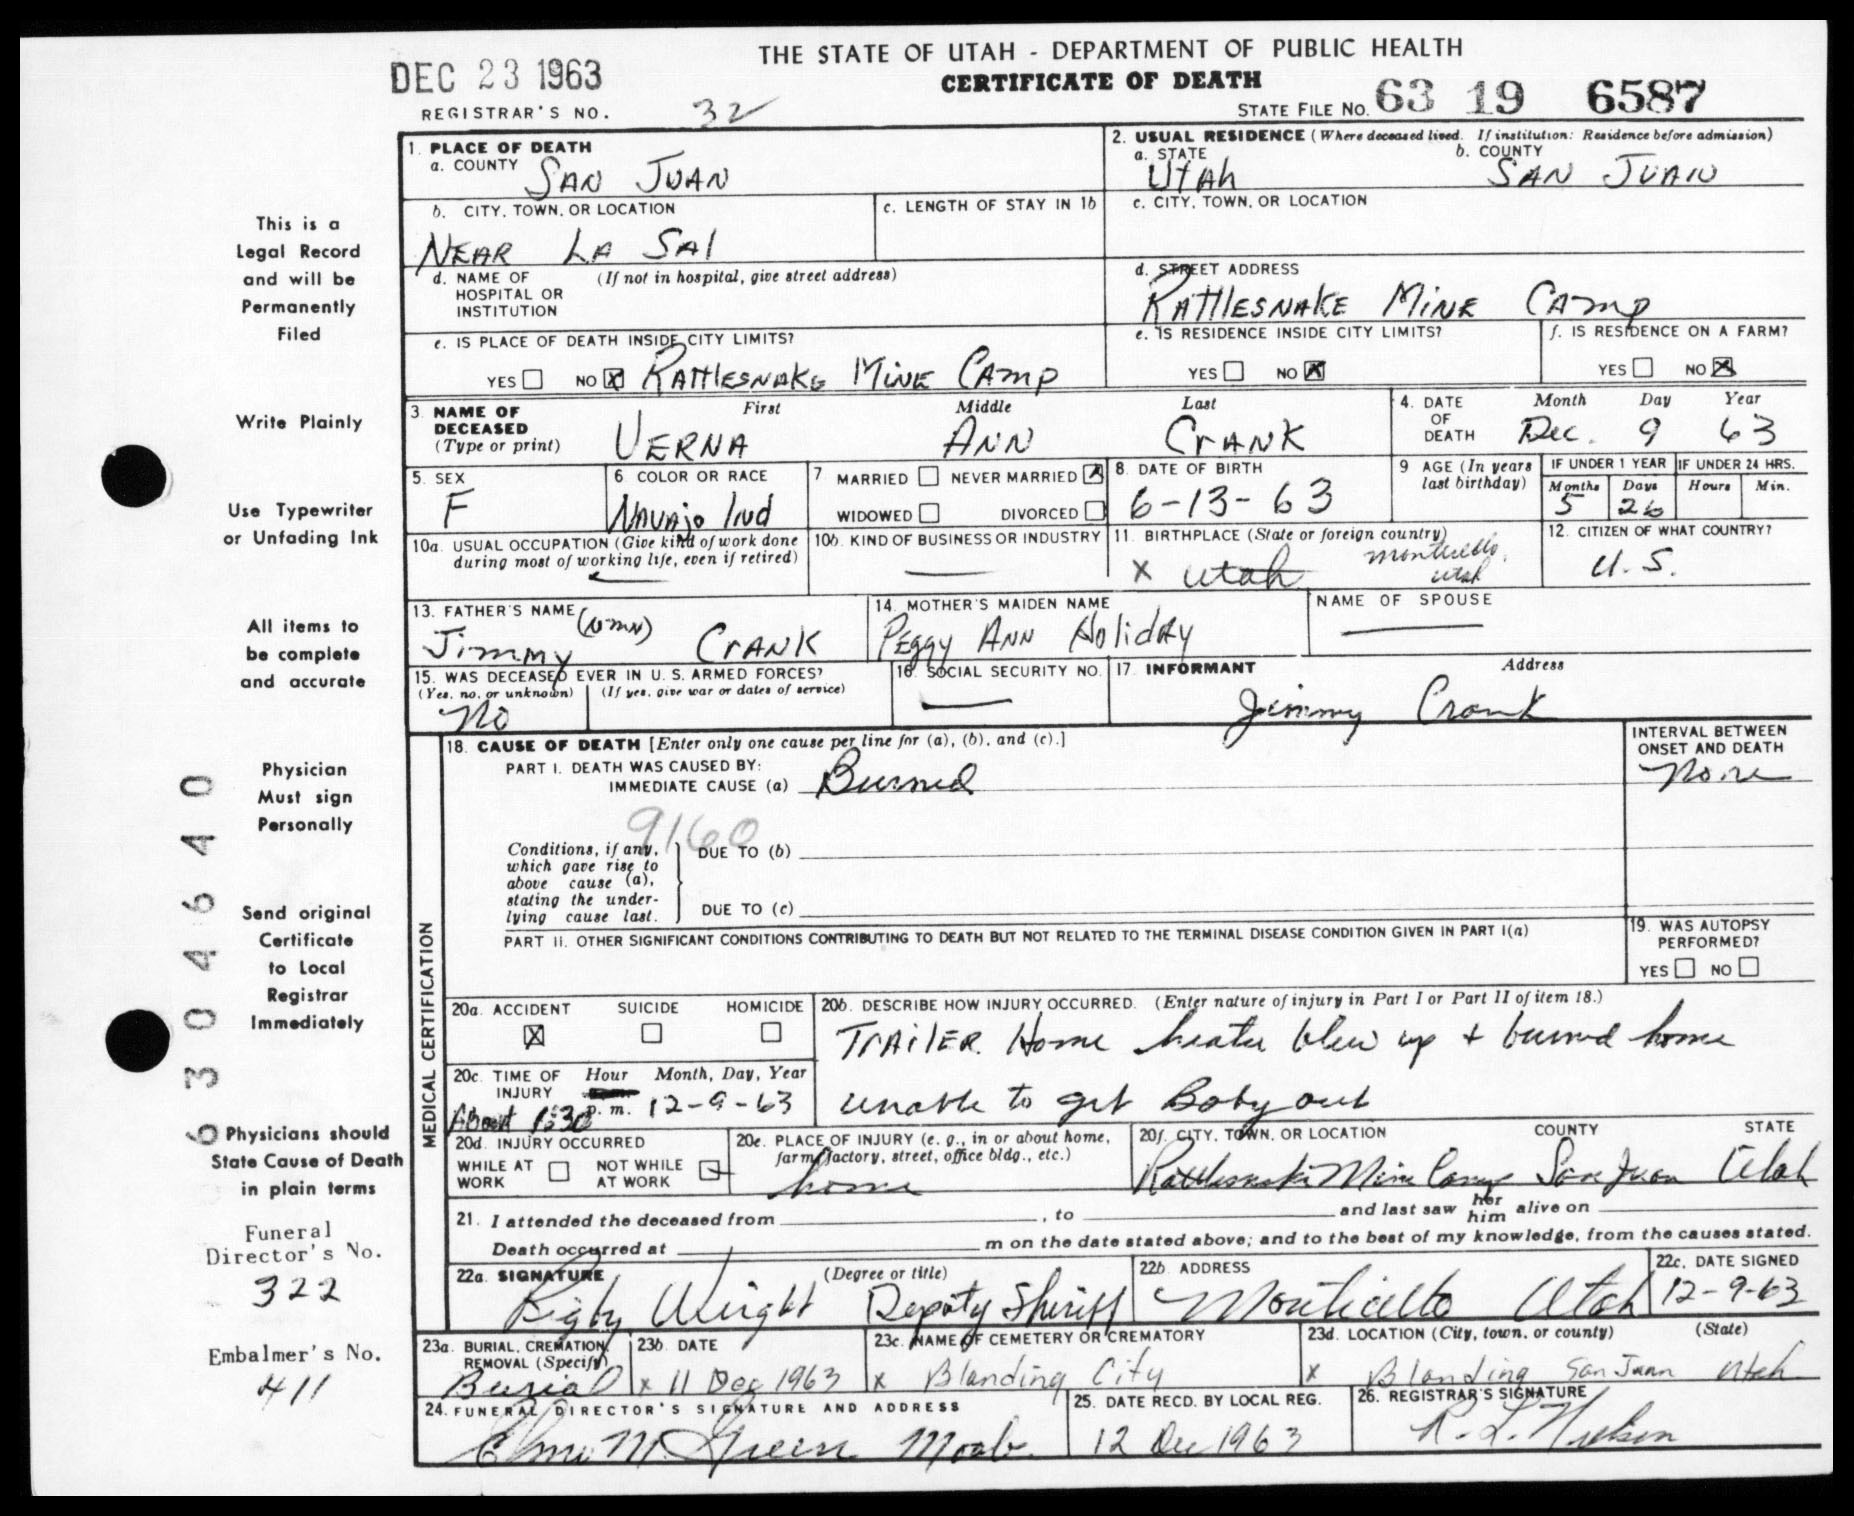 THE STATE OF UTAH - DEPARTMENT OF PUBLIC HEALTH
DEC 23 1963
CERTIFICATE OF DEATH
REGISTRAR'S NO. 32
STATE FILE NO. 63 19 6587
1. PLACE OF DEATH
a. COUNTY SAN JUAN
2. USUAL RESIDENCE (Where deceased lived. If institution: Residence before admission)
a. STATE Utah
b. COUNTY SAN JUAN
b. CITY, TOWN, OR LOCATION
NEAR LA SAl
c. LENGTH OF STAY IN 1b
c. CITY, TOWN, OR LOCATION
d. NAME OF HOSPITAL OR INSTITUTION (If not in hospital, give street address)
d. STREET ADDRESS
RAttlESNAKE MINE CAmp
e. IS PLACE OF DEATH INSIDE CITY LIMITS?
YES NO X RAttlESNAKE MINE CAmp
e. IS RESIDENCE INSIDE CITY LIMITS?
YES NO X
f. IS RESIDENCE ON A FARM?
YES NO X
3. NAME OF DECEASED (Type or print)
First Middle Last
VERNA ANN CrANK
4. DATE OF DEATH
Month Day Year
Dec. 9 63
5. SEX
F
6. COLOR OR RACE
NAVAjo Ind
7. MARRIED NEVER MARRIED X
WIDOWED DIVORCED
8. DATE OF BIRTH
6-13-63
9. AGE (In years last birthday)
IF UNDER 1 YEAR IF UNDER 24 HRS.
Months Days Hours Min.
5 26
10a. USUAL OCCUPATION (Give kind of work done during most of working life, even if retired)
10b. KIND OF BUSINESS OR INDUSTRY
11. BIRTHPLACE (State or foreign country)
x utah monticello, utah
12. CITIZEN OF WHAT COUNTRY?
U.S.
13. FATHER'S NAME
Jimmy (nmn) CrANK
14. MOTHER'S MAIDEN NAME
PEggy ANN HolidAy
NAME OF SPOUSE
15. WAS DECEASED EVER IN U.S. ARMED FORCES?
(Yes, no, or unknown) (If yes, give war or dates of service)
No
16. SOCIAL SECURITY NO.
17. INFORMANT Address
Jimmy Crank
MEDICAL CERTIFICATION
18. CAUSE OF DEATH [Enter only one cause per line for (a), (b), and (c).]
PART I. DEATH WAS CAUSED BY:
IMMEDIATE CAUSE (a) Burned
INTERVAL BETWEEN ONSET AND DEATH
None
9160
Conditions, if any, which gave rise to above cause (a), stating the underlying cause last.
DUE TO (b)
DUE TO (c)
PART II. OTHER SIGNIFICANT CONDITIONS CONTRIBUTING TO DEATH BUT NOT RELATED TO THE TERMINAL DISEASE CONDITION GIVEN IN PART I(a)
19. WAS AUTOPSY PERFORMED?
YES NO
20a. ACCIDENT SUICIDE HOMICIDE
X
20b. DESCRIBE HOW INJURY OCCURRED. (Enter nature of injury in Part I or Part II of item 18.)
TrAilER Home heater blew up + burned home
unable to get Baby out
20c. TIME OF INJURY Hour Month, Day, Year
About 1:30 p.m. 12-9-63
20d. INJURY OCCURRED
WHILE AT WORK NOT WHILE AT WORK
20e. PLACE OF INJURY (e. g., in or about home, farm, factory, street, office bldg., etc.)
home
20f. CITY, TOWN, OR LOCATION COUNTY STATE
Rattlesnake Mine Camp San Juan Utah
21. I attended the deceased from , to and last saw her him alive on
Death occurred at m on the date stated above; and to the best of my knowledge, from the causes stated.
22a. SIGNATURE (Degree or title)
Rigby Wright Deputy Sheriff
22b. ADDRESS
Monticello Utah
22c. DATE SIGNED
12-9-63
23a. BURIAL, CREMATION, REMOVAL (Specify)
Burial
23b. DATE
x 11 Dec 1963
23c. NAME OF CEMETERY OR CREMATORY
x Blanding City
23d. LOCATION (City, town, or county) (State)
x Blanding San Juan Utah
24. FUNERAL DIRECTOR'S SIGNATURE AND ADDRESS
M. Green Moab
25. DATE RECD. BY LOCAL REG.
12 Dec 1963
26. REGISTRAR'S SIGNATURE
R. L. Nielson
This is a
Legal Record
and will be
Permanently
Filed
Write Plainly
Use Typewriter
or Unfading Ink
All items to
be complete
and accurate
Physician
Must sign
Personally
Send original
Certificate
to Local
Registrar
Immediately
Physicians should
State Cause of Death
in plain terms
Funeral
Director's No.
322
Embalmer's No.
411
63 04640